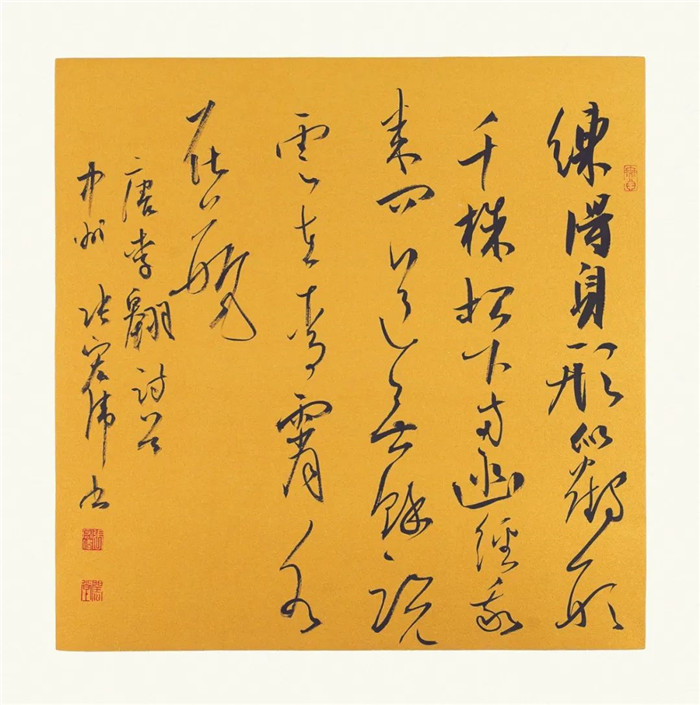 練得身形似鶴形
千株松下兩函經我
來問道無餘說
雲在青霄水
在瓶
唐李翱詩一首
中州張宏偉書